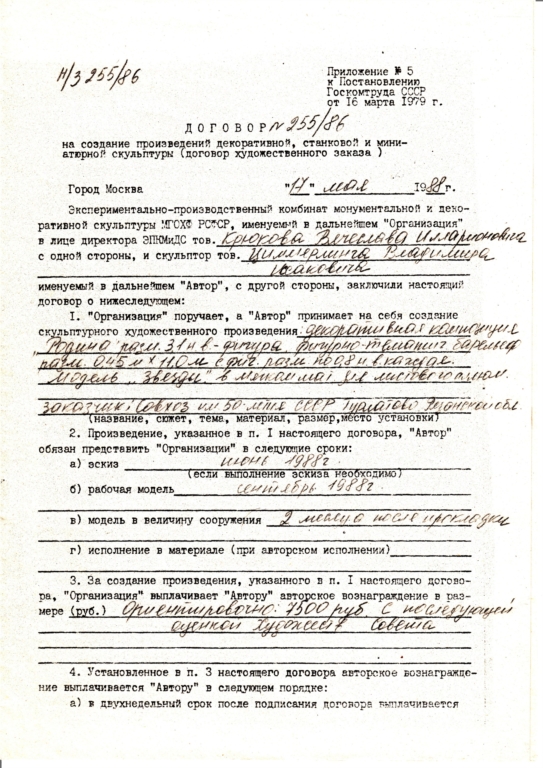 Н/З 255/86
Приложение № 5
к Постановлению
Госкомтруда СССР
от 16 марта 1979 г.
ДОГОВОР № 255/86
на создание произведений декоративной, станковой и мини-
атюрной скульптуры (договор художественного заказа )
Город Москва "17" мая 1988 г.
Экспериментально-производственный комбинат монументальной и деко-
ративной скульптуры МГОХФ РСФСР, именуемый в дальнейшем "Организация"
в лице директора ЭПКМиДС тов. Крюкова Вячеслава Илларионовича
с одной стороны, и скульптор тов. Циммерлинга Владимира
Исаковича
именуемый в дальнейшем "Автор", с другой стороны, заключили настоящий
договор о нижеследующем:
I. "Организация" поручает, а "Автор" принимает на себя создание
скульптурного художественного произведения: декоративная композиция
"Родина" разм. 3,1 н.в. - фигура барельеф
разм. 0,45 м х 11,0 м с фиг. разм. по 0,8 н.в. каждая.
Модель "Звезды" в
заказчик: Совхоз им 50-летия СССР обл.
(название, сюжет, тема, материал, размер, место установки)
2. Произведение, указанное в п. I настоящего договора, "Автор"
обязан представить "Организации" в следующие сроки:
а) эскиз июнь 1988г.
(если выполнение эскиза необходимо)
б) рабочая модель сентябрь 1988г.
в) модель в величину сооружения 2 месяца после прокладки
г) исполнение в материале (при авторском исполнении)
3. За создание произведения, указанного в п. I настоящего догово-
ра, "Организация" выплачивает "Автору" авторское вознаграждение в раз-
мере (руб.) Ориентировочно: 7500 руб с последующей
оценкой Художест. Совета
4. Установленное в п. 3 настоящего договора авторское вознагражде-
ние выплачивается "Автору" в следующем порядке:
а) в двухнедельный срок после подписания договора выплачивается